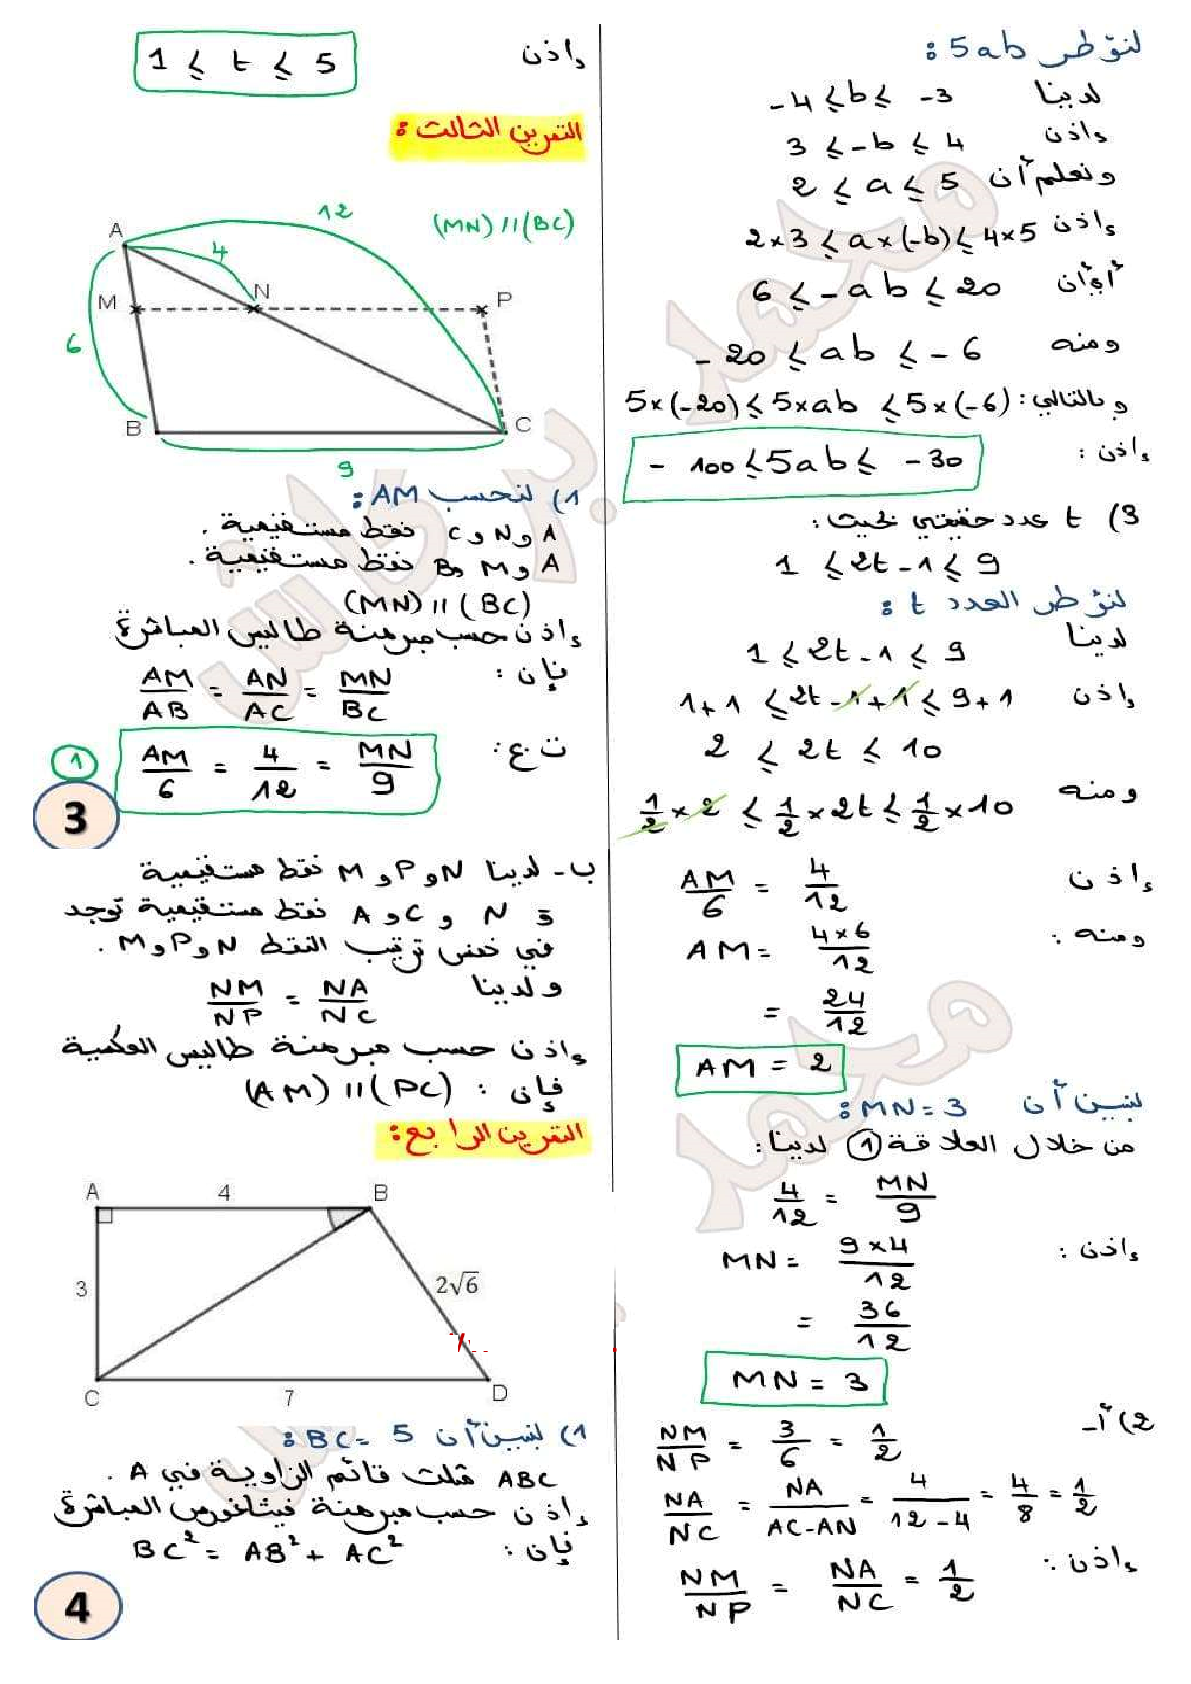 لنؤطر 5ab :
لدينا -4 ≤ b ≤ -3
إذن 3 ≤ -b ≤ 4
ونعلم أن 2 ≤ a ≤ 5
إذن 2×3 ≤ a×(-b) ≤ 4×5
أي أن 6 ≤ -ab ≤ 20
ومنه -20 ≤ ab ≤ -6
وبالتالي: 5×(-20) ≤ 5×ab ≤ 5×(-6)
إذن : -100 ≤ 5ab ≤ -30
3) t عدد حقيقي بحيث :
1 ≤ 2t-1 ≤ 9
لنؤطر العدد t :
لدينا 1 ≤ 2t-1 ≤ 9
إذن 1+1 ≤ 2t-1+1 ≤ 9+1
2 ≤ 2t ≤ 10
ومنه 1/2 × 2 ≤ 1/2 × 2t ≤ 1/2 × 10
إذن 1 ≤ t ≤ 5
التمرين الثالث :
12
(MN) // (BC)
A
4
M
N
P
6
B
C
9
1) لنحسب AM :
A و N و C نقط مستقيمية .
A و M و B نقط مستقيمية .
(MN) // (BC)
إذن حسب مبرهنة طاليس المباشرة
فإن : AM/AB = AN/AC = MN/BC
ت ع : AM/6 = 4/12 = MN/9 ①
3
إذن AM/6 = 4/12
ومنه : AM = 4×6/12
= 24/12
AM = 2
لنبين أن MN = 3 :
من خلال العلاقة ① لدينا :
4/12 = MN/9
إذن : MN = 9×4/12
= 36/12
MN = 3
2) أ- NM/NP = 3/6 = 1/2
NA/NC = NA/AC-AN = 4/12-4 = 4/8 = 1/2
إذن : NM/NP = NA/NC = 1/2
ب- لدينا N و P و M نقط مستقيمية
و N و C و A نقط مستقيمية توجد
في نفس ترتيب النقط N و P و M .
ولدينا NM/NP = NA/NC
إذن حسب مبرهنة طاليس العكسية
فإن : (AM) // (PC)
التمرين الرابع :
A
4
B
3
2√6
C
7
D
1) لنبين أن BC = 5 :
ABC مثلث قائم الزاوية في A .
إذن حسب مبرهنة فيثاغورس المباشرة
فإن : BC² = AB² + AC²
4